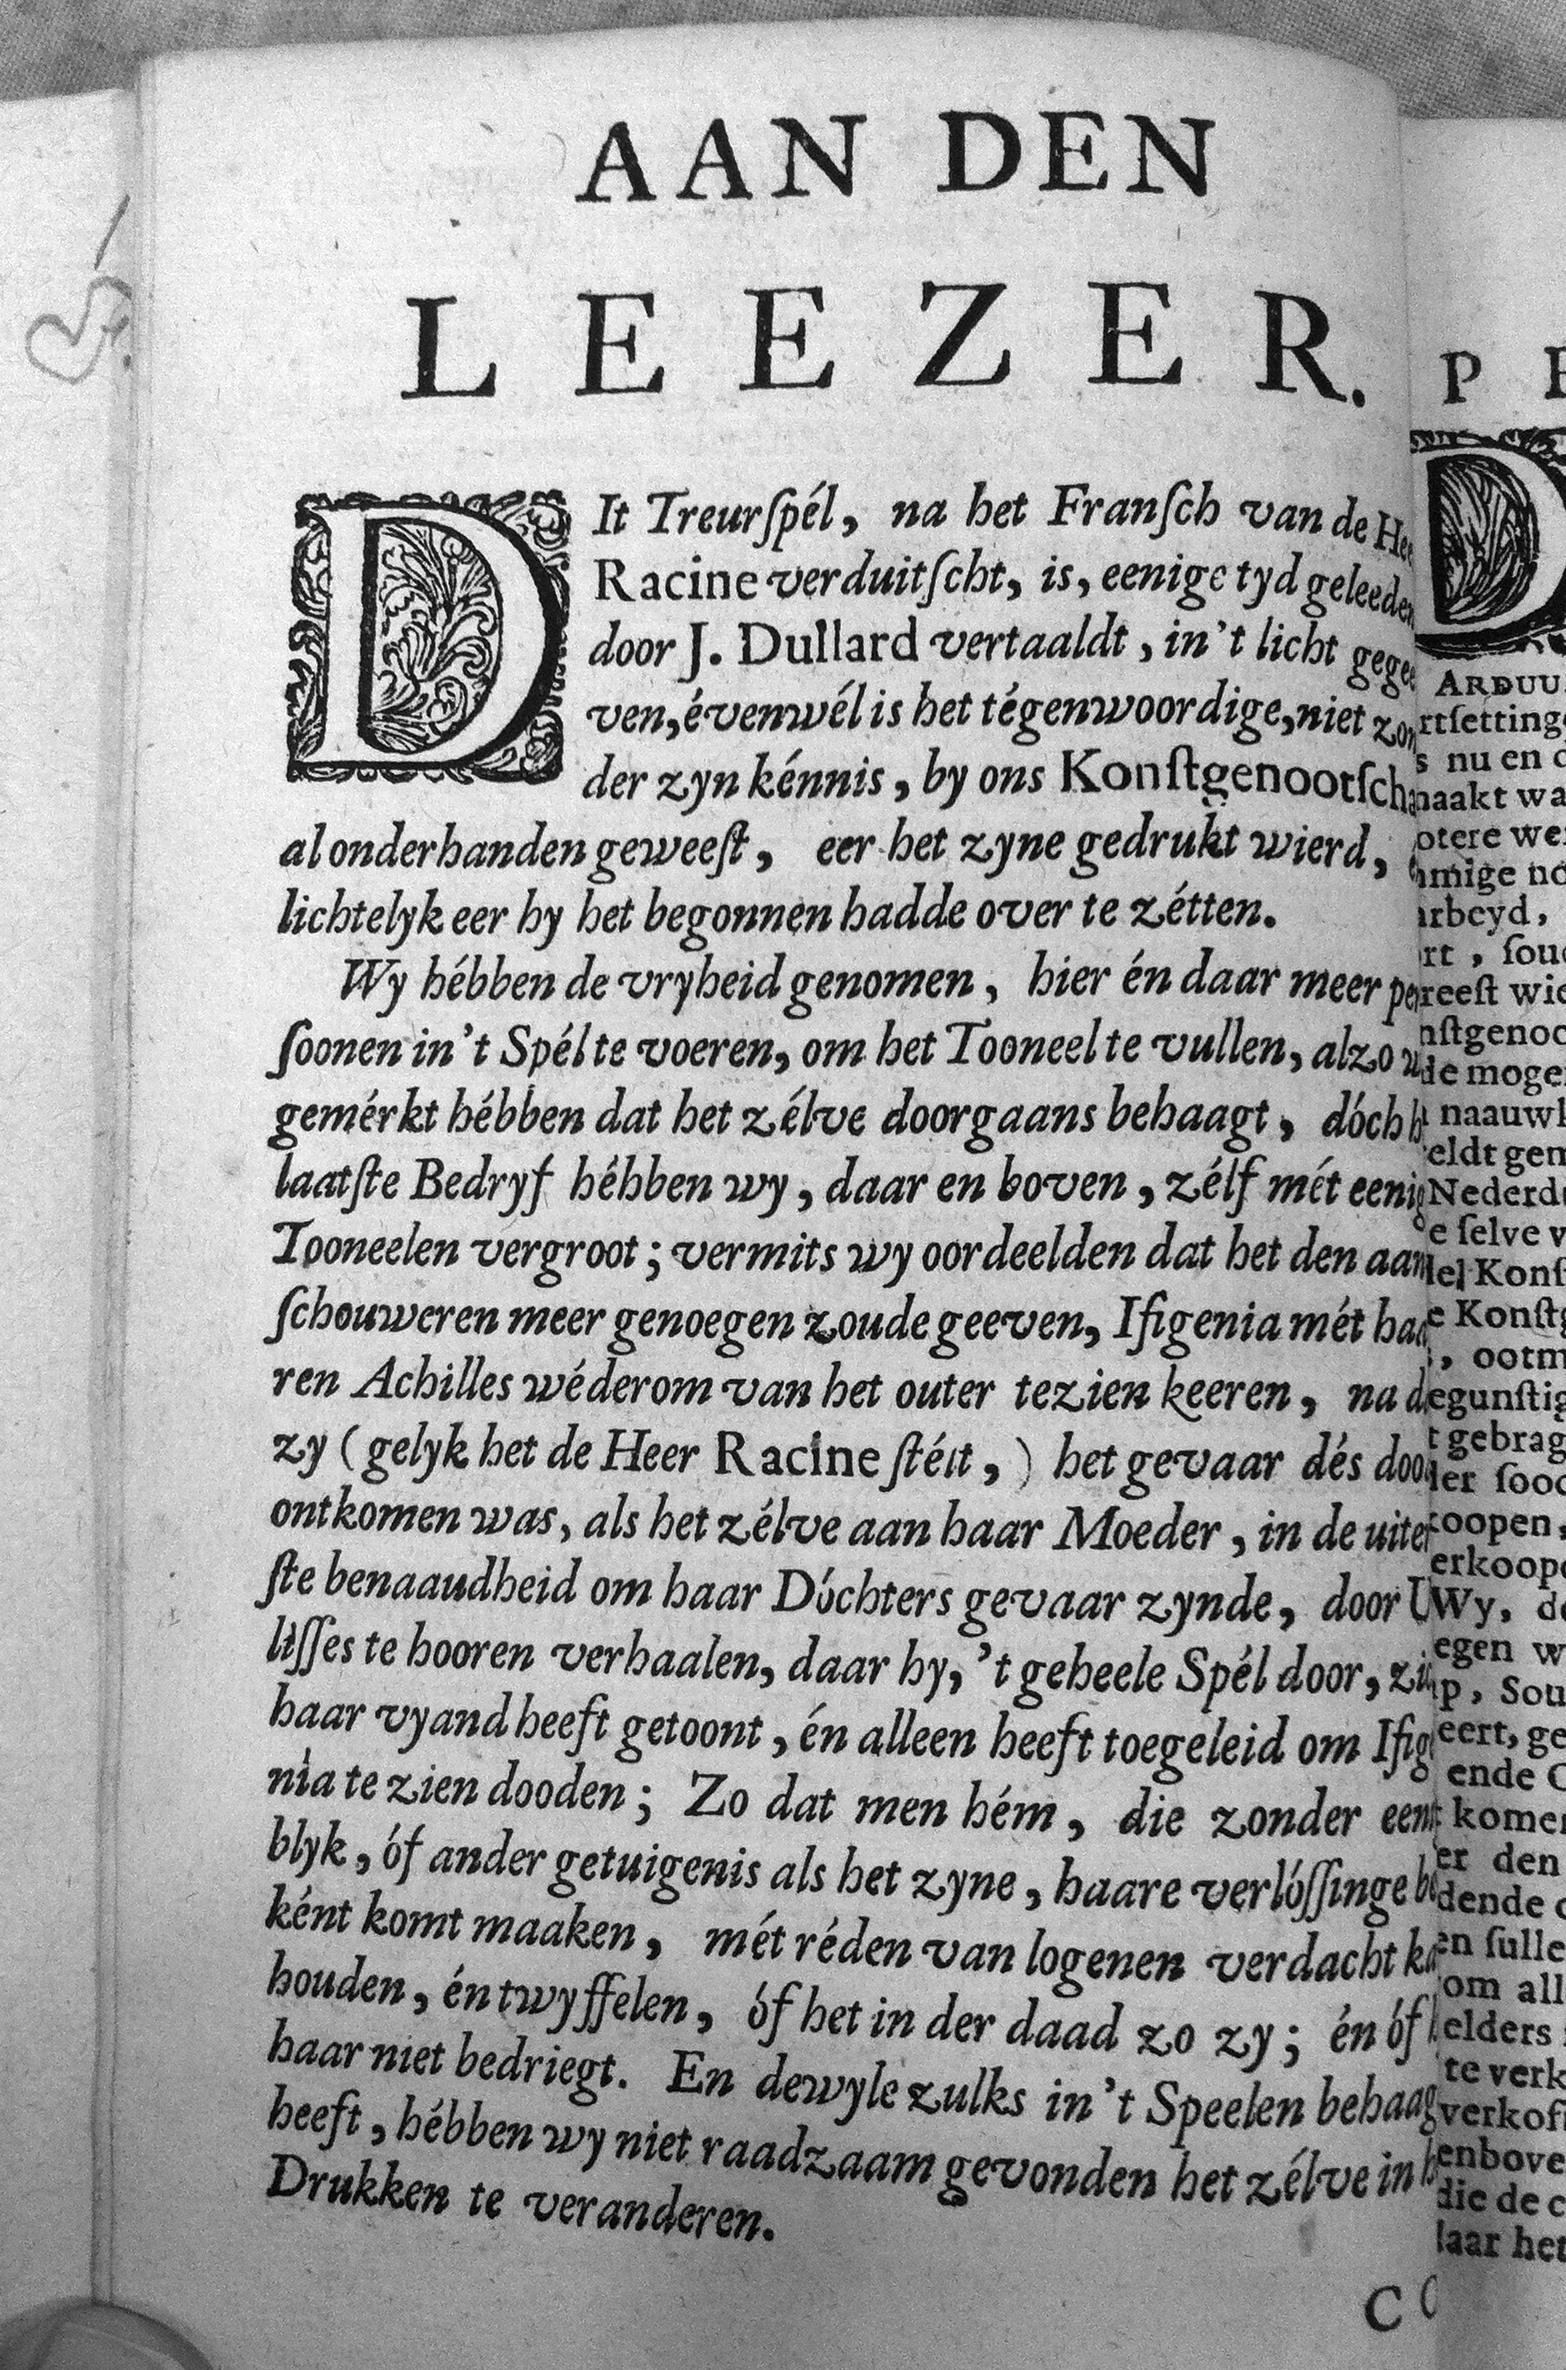 AAN DEN
LEEZER.
DIt Treurſpél, na het Franſch van de
Racine verduitſcht, is, eenige tyd geleeden
door J. Dullard vertaaldt, in't licht gegee
ven, évenwél is het tégenwoordige, niet zon
der zyn kénnis, by ons Konſtgenootſcha
al onderhanden geweeſt, eer het zyne gedrukt wierd,
lichtelyk eer hy het begonnen hadde over te zétten.
Wy hébben de vryheid genomen, hier én daar meer per
ſoonen in't Spél te voeren, om het Tooneel te vullen, alzo
gemérkt hébben dat het zélve doorgaans behaagt, dóch
laatſte Bedryf hébben wy, daar en boven, zélf mét eenig
Tooneelen vergroot; vermits wy oordeelden dat het den aan
ſchouweren meer genoegen zoude geeven, Ifigenia mét haa
ren Achilles wéderom van het outer te zien keeren, na
zy (gelyk het de Heer Racine ſtélt,) het gevaar dés doo
ontkomen was, als het zélve aan haar Moeder, in de uiter
ſte benaaudheid om haar Dóchters gevaar zynde, door U
liſſes te hooren verhaalen, daar hy, 't geheele Spél door, zi
haar vyand heeft getoont, én alleen heeft toegeleid om Ifig
nia te zien dooden; Zo dat men hém, die zonder een
blyk, óf ander getuigenis als het zyne, haare verlóſſinge be
ként komt maaken, mét réden van logenen verdacht ka
houden, én twyffelen, óf het in der daad zo zy; én óf
haar niet bedriegt. En dewyle zulks in't Speelen behaag
heeft, hébben wy niet raadzaam gevonden het zélve in
Drukken te veranderen.
C O
P
D
ARDUU
rtſetting
s nu en
maakt wa
otere we
mige no
arbeyd,
rt, ſou
reeſt wie
nſtgenoo
de moge
naauwl
eldt gem
Nederd
e ſelve v
del Konſ
e Konſtg
, ootm
egunſtig
t gebrag
der ſoo
coopen,
erkoop
Wy, d
egen w
ip, Sou
eert, ge
ende
komen
er den
dende
en ſulle
om all
elders
te verk
verkof
enbove
die de c
laar het